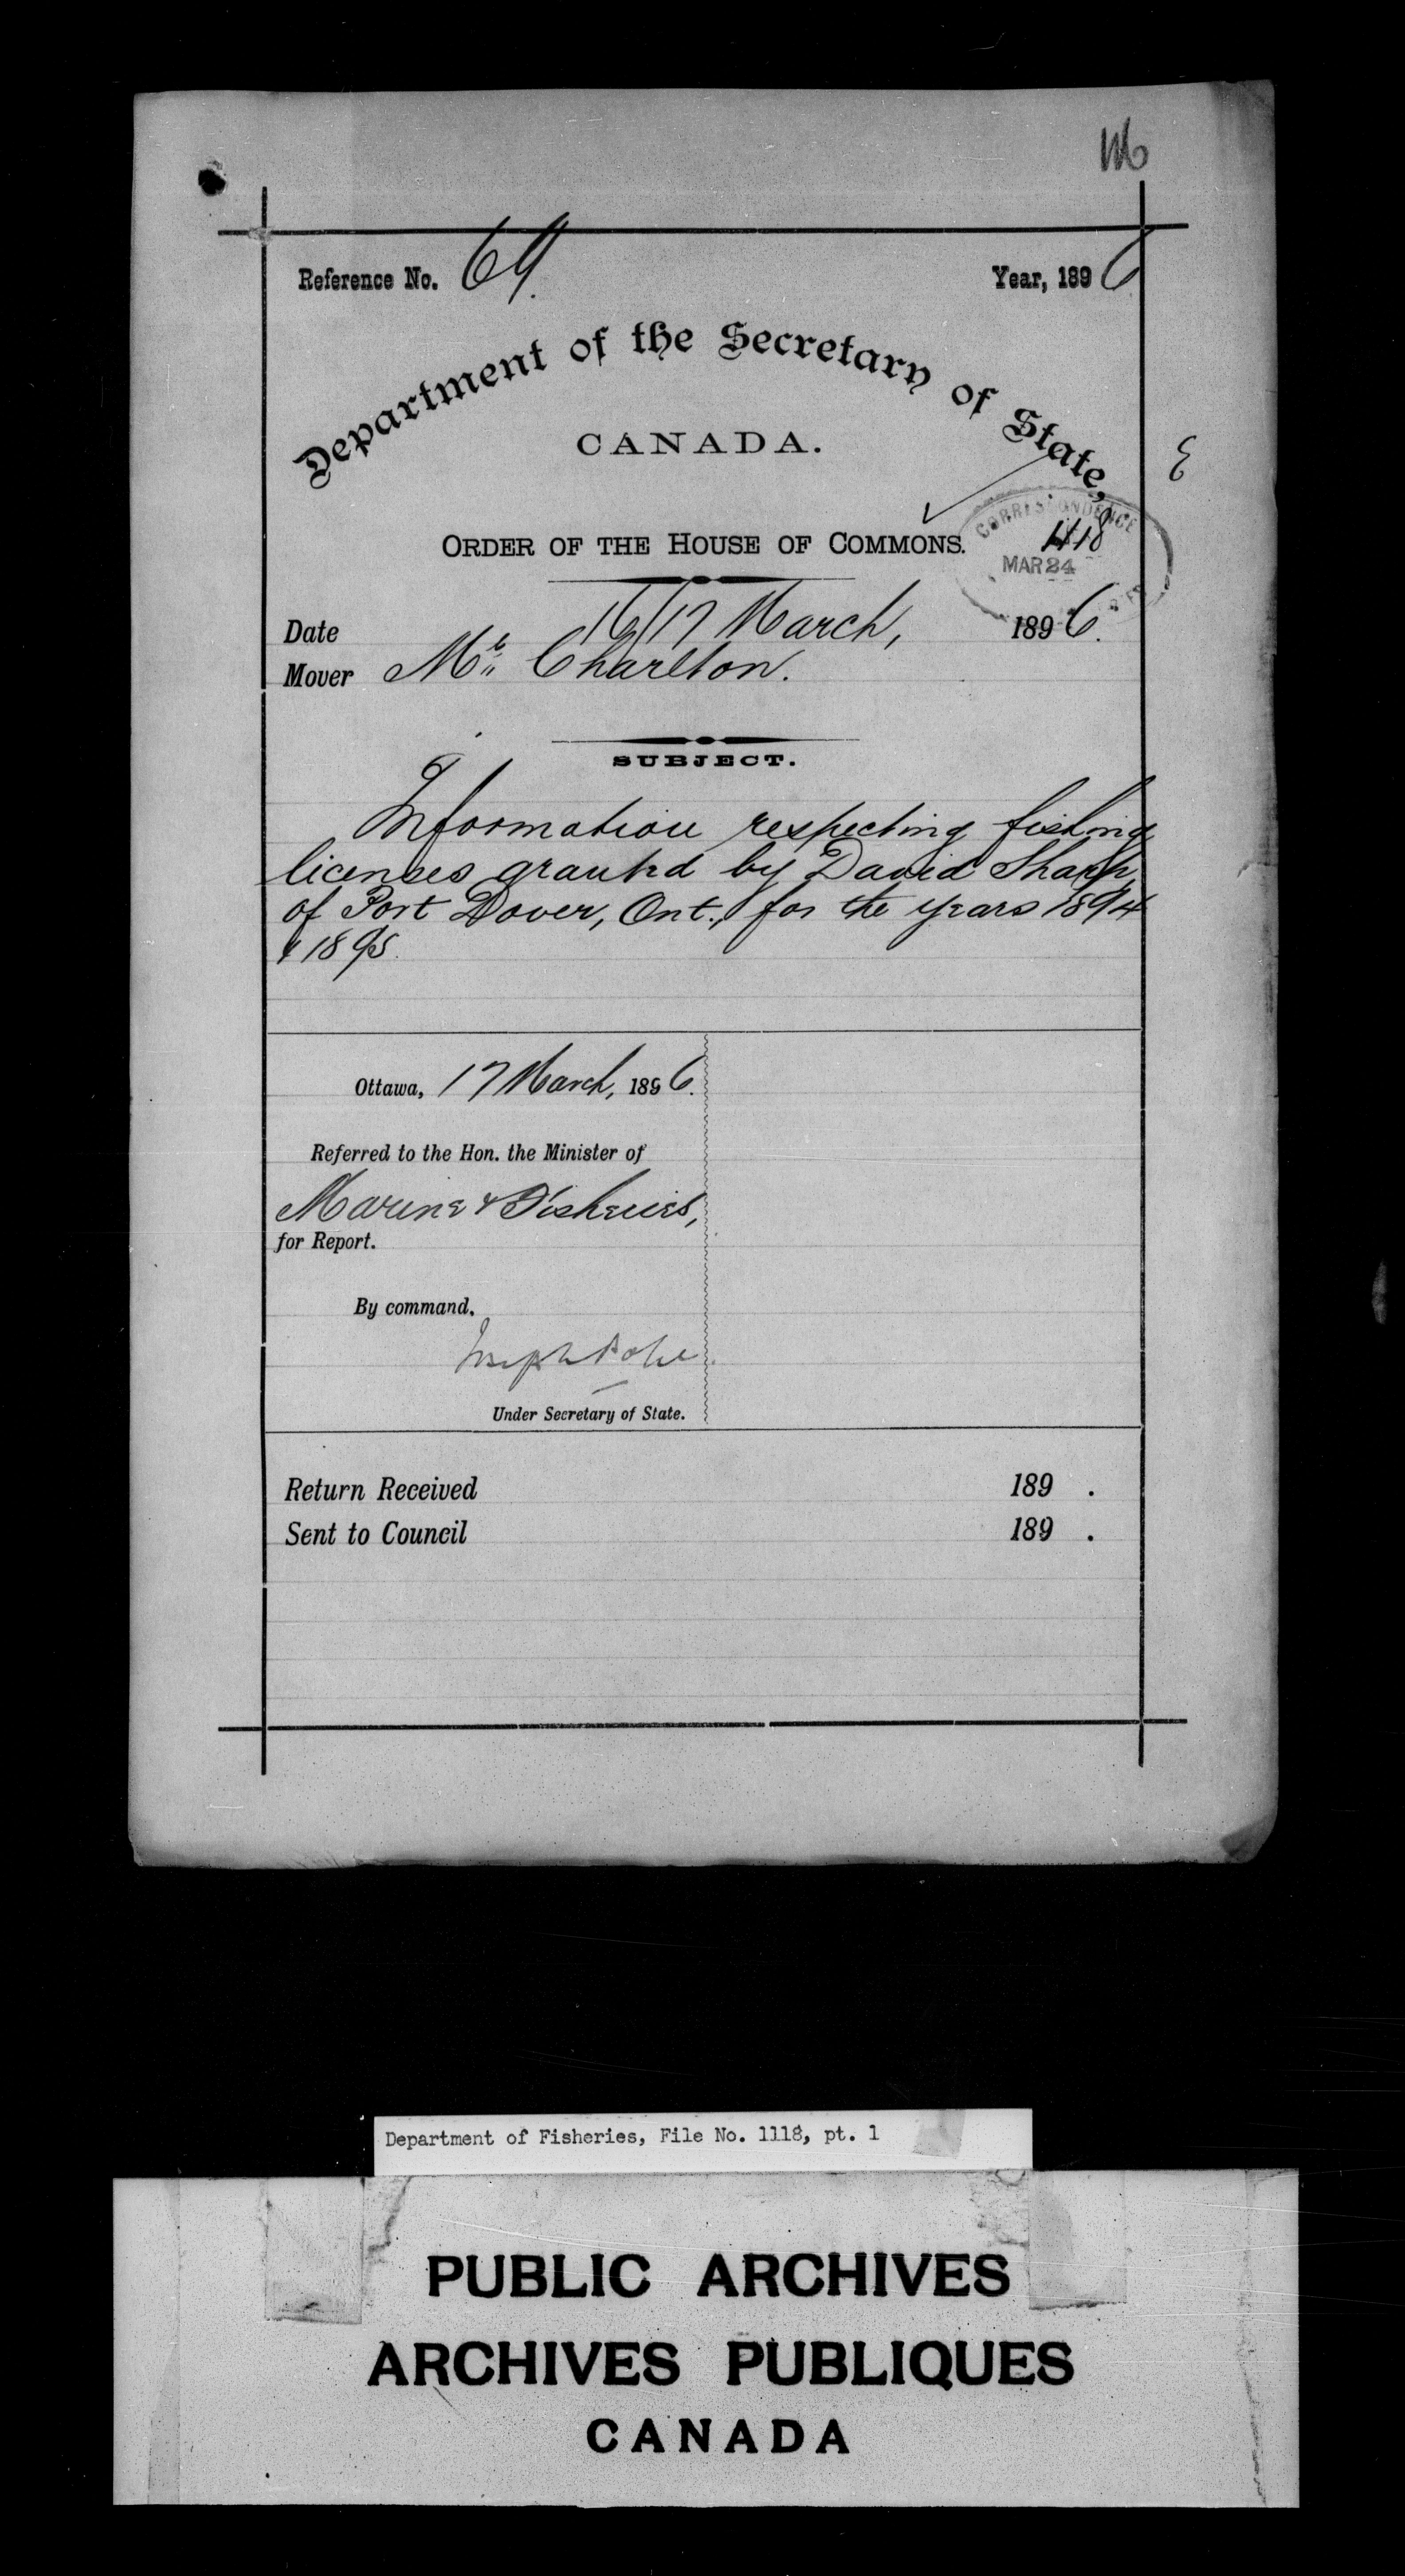 Reference No. 69.
Year, 1896
Department of the Secretary of State,
CANADA.
CORRESPONDENCE
1118
MAR 24
ORDER OF THE HOUSE OF COMMONS.
Date 16/17 March, 1896.
Mover Mr. Charlton.
SUBJECT.
Information respecting fishing
licenses granted by David Sharp,
of Port Dover, Ont., for the years 1894
& 1895.
Ottawa, 17 March, 1896.
Referred to the Hon. the Minister of
Marine & Fisheries,
for Report.
By command,
Joseph Pope
Under Secretary of State.
Return Received 189 .
Sent to Council 189 .
Department of Fisheries, File No. 1118, pt. 1
PUBLIC ARCHIVES
ARCHIVES PUBLIQUES
CANADA